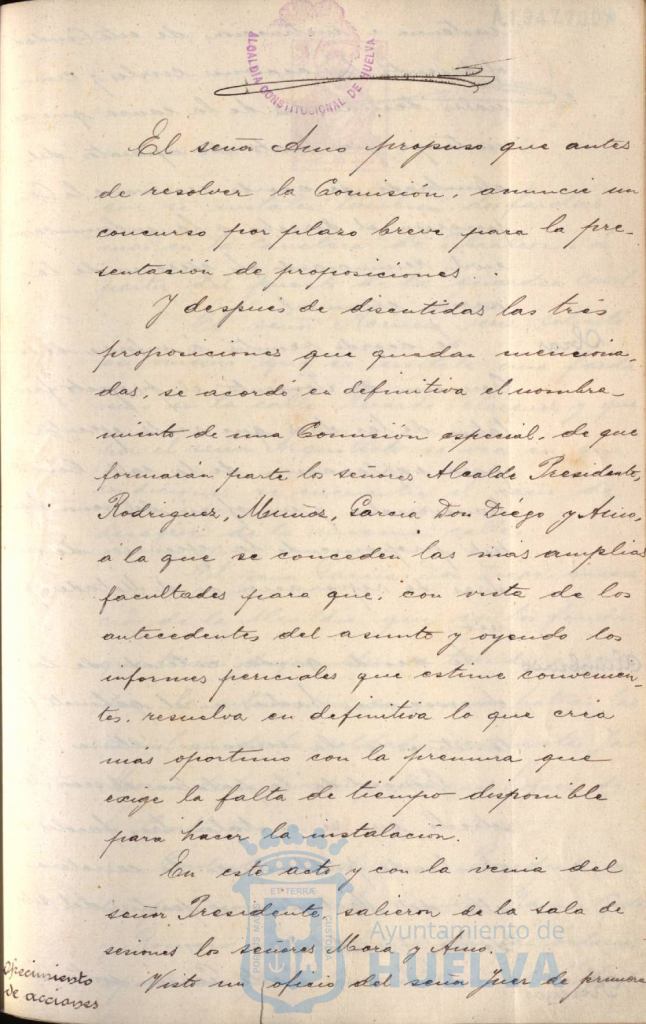 ALCALDIA CONSTITUCIONAL DE HUELVA
El señor Amo propuso que antes
de resolver la Comisión, anuncie un
concurso por plazo breve para la pre-
sentación de proposiciones.
Y después de discutidas las tres
proposiciones que quedan menciona-
das, se acordó en definitiva el nombra-
miento de una Comisión especial, de que
formarán parte los señores Alcalde Presidente,
Rodriguez, Muñoz, Garcia Don Diégo y Amo,
á la que se conceden las más amplias
facultades para que, con vista de los
antecedentes del asunto y oyendo los
informes periciales que estime convenien-
tes, resuelva en definitiva lo que crea
más oportuno con la premura que
exige la falta de tiempo disponible
para hacer la instalación.
En este acto y con la venia del
señor Presidente, salieron de la sala de
sesiones los señores Mora y Amo.
Ofrecimiento
de acciones
Visto un oficio del señor Juez de primera
PORTUS MARIS ET TERRÆ CUSTODIA
Ayuntamiento de
HUELVA